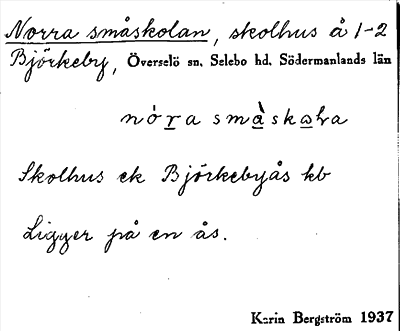 Norra småskolan, skolhus å 1-2
Björkeby, Överselö sn, Selebo hd, Södermanlands län
Skolhus ek Björkebyås kb
Ligger på en ås.
Karin Bergström 1937